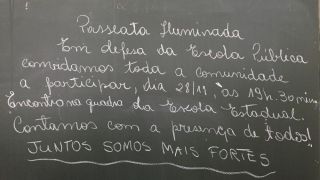 Passeata Iluminada
Em defesa da Escola Pública
convidamos toda a comunidade
a participar, dia 28/11 às 19h.30min
Encontro na quadra da Escola Estadual.
Contamos com a presença de todos!
JUNTOS SOMOS MAIS FORTES